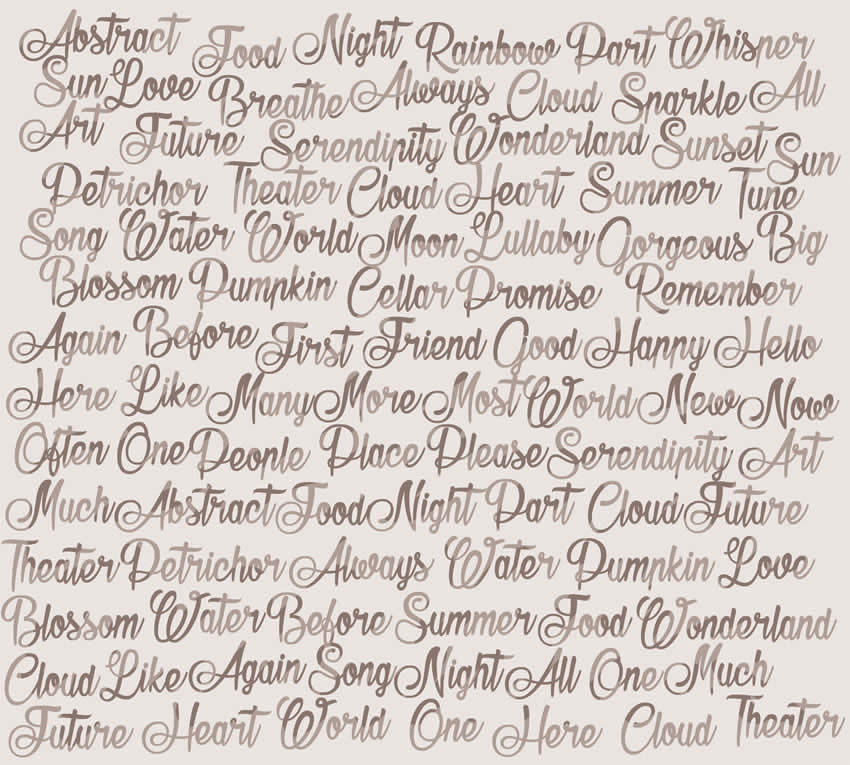 Abstract Food Night Rainbow Part Whisper
Sun Love Breathe Always Cloud Sparkle All
Art Future Serendipity Wonderland Sunset Sun
Petrichor Theater Cloud Heart Summer Tune
Song Water World Moon Lullaby Gorgeous Big
Blossom Pumpkin Cellar Promise Remember
Again Before First Friend Good Happy Hello
Here Like Many More Most World New Now
Often One People Place Please Serendipity Art
Much Abstract Food Night Part Cloud Future
Theater Petrichor Always Water Pumpkin Love
Blossom Water Before Summer Food Wonderland
Cloud Like Again Song Night All One Much
Future Heart World One Here Cloud Theater